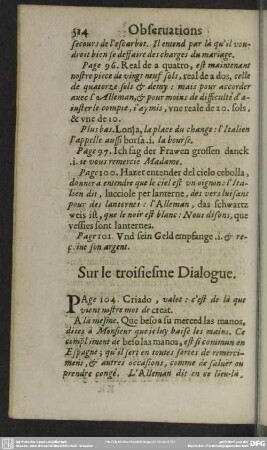 514 Obseruations
secours de l'escarbot. Il entend par là qu'il vou-
droit bien se deffaire des charges du mariage.
Page 96. Real de a quatro, est maintenant
nostre piece de vingt neuf sols, real de a dos, celle
de quatorze sols & demy: mais pour accorder
auec l'Alleman, & pour moins de difficulté d'a-
iuster le compte, i'ay mis, vne reale de 20. sols,
& vne de 10.
Plus bas. Lonja, la place du change: l'Italien
l'appelle aussi borsa .i. la bourse.
Page 97. Ich sag der Frawen grossen danck
.i. ie vous remercie Madame.
Page 100. Hazer entender del cielo cebolla,
donner à entendre que le ciel est vn oignon: l'Ita-
lien dit, lucciole per lanterne, des vers luisans
pour des lanternes: l'Alleman, das schwartz
weis ist, que le noir est blanc: Nous disons, que
vessies sont lanternes.
Page 101. Vnd sein Geld empfange .i. & re-
çoiue son argent.
Sur le troisiesme Dialogue.
PAge 104. Criado, valet: c'est de là que
vient nostre mot de creat.
A la mesme. Que beso a su merced las manos,
dites à Monsieur que ie luy baise les mains. Ce
compliment de beso las manos, est si commun en
Espagne, qu'il sert en toutes sortes de remerci-
mens, & autres occasions, comme de saluër ou
prendre congé. L'Alleman dit en ce lieu-là,